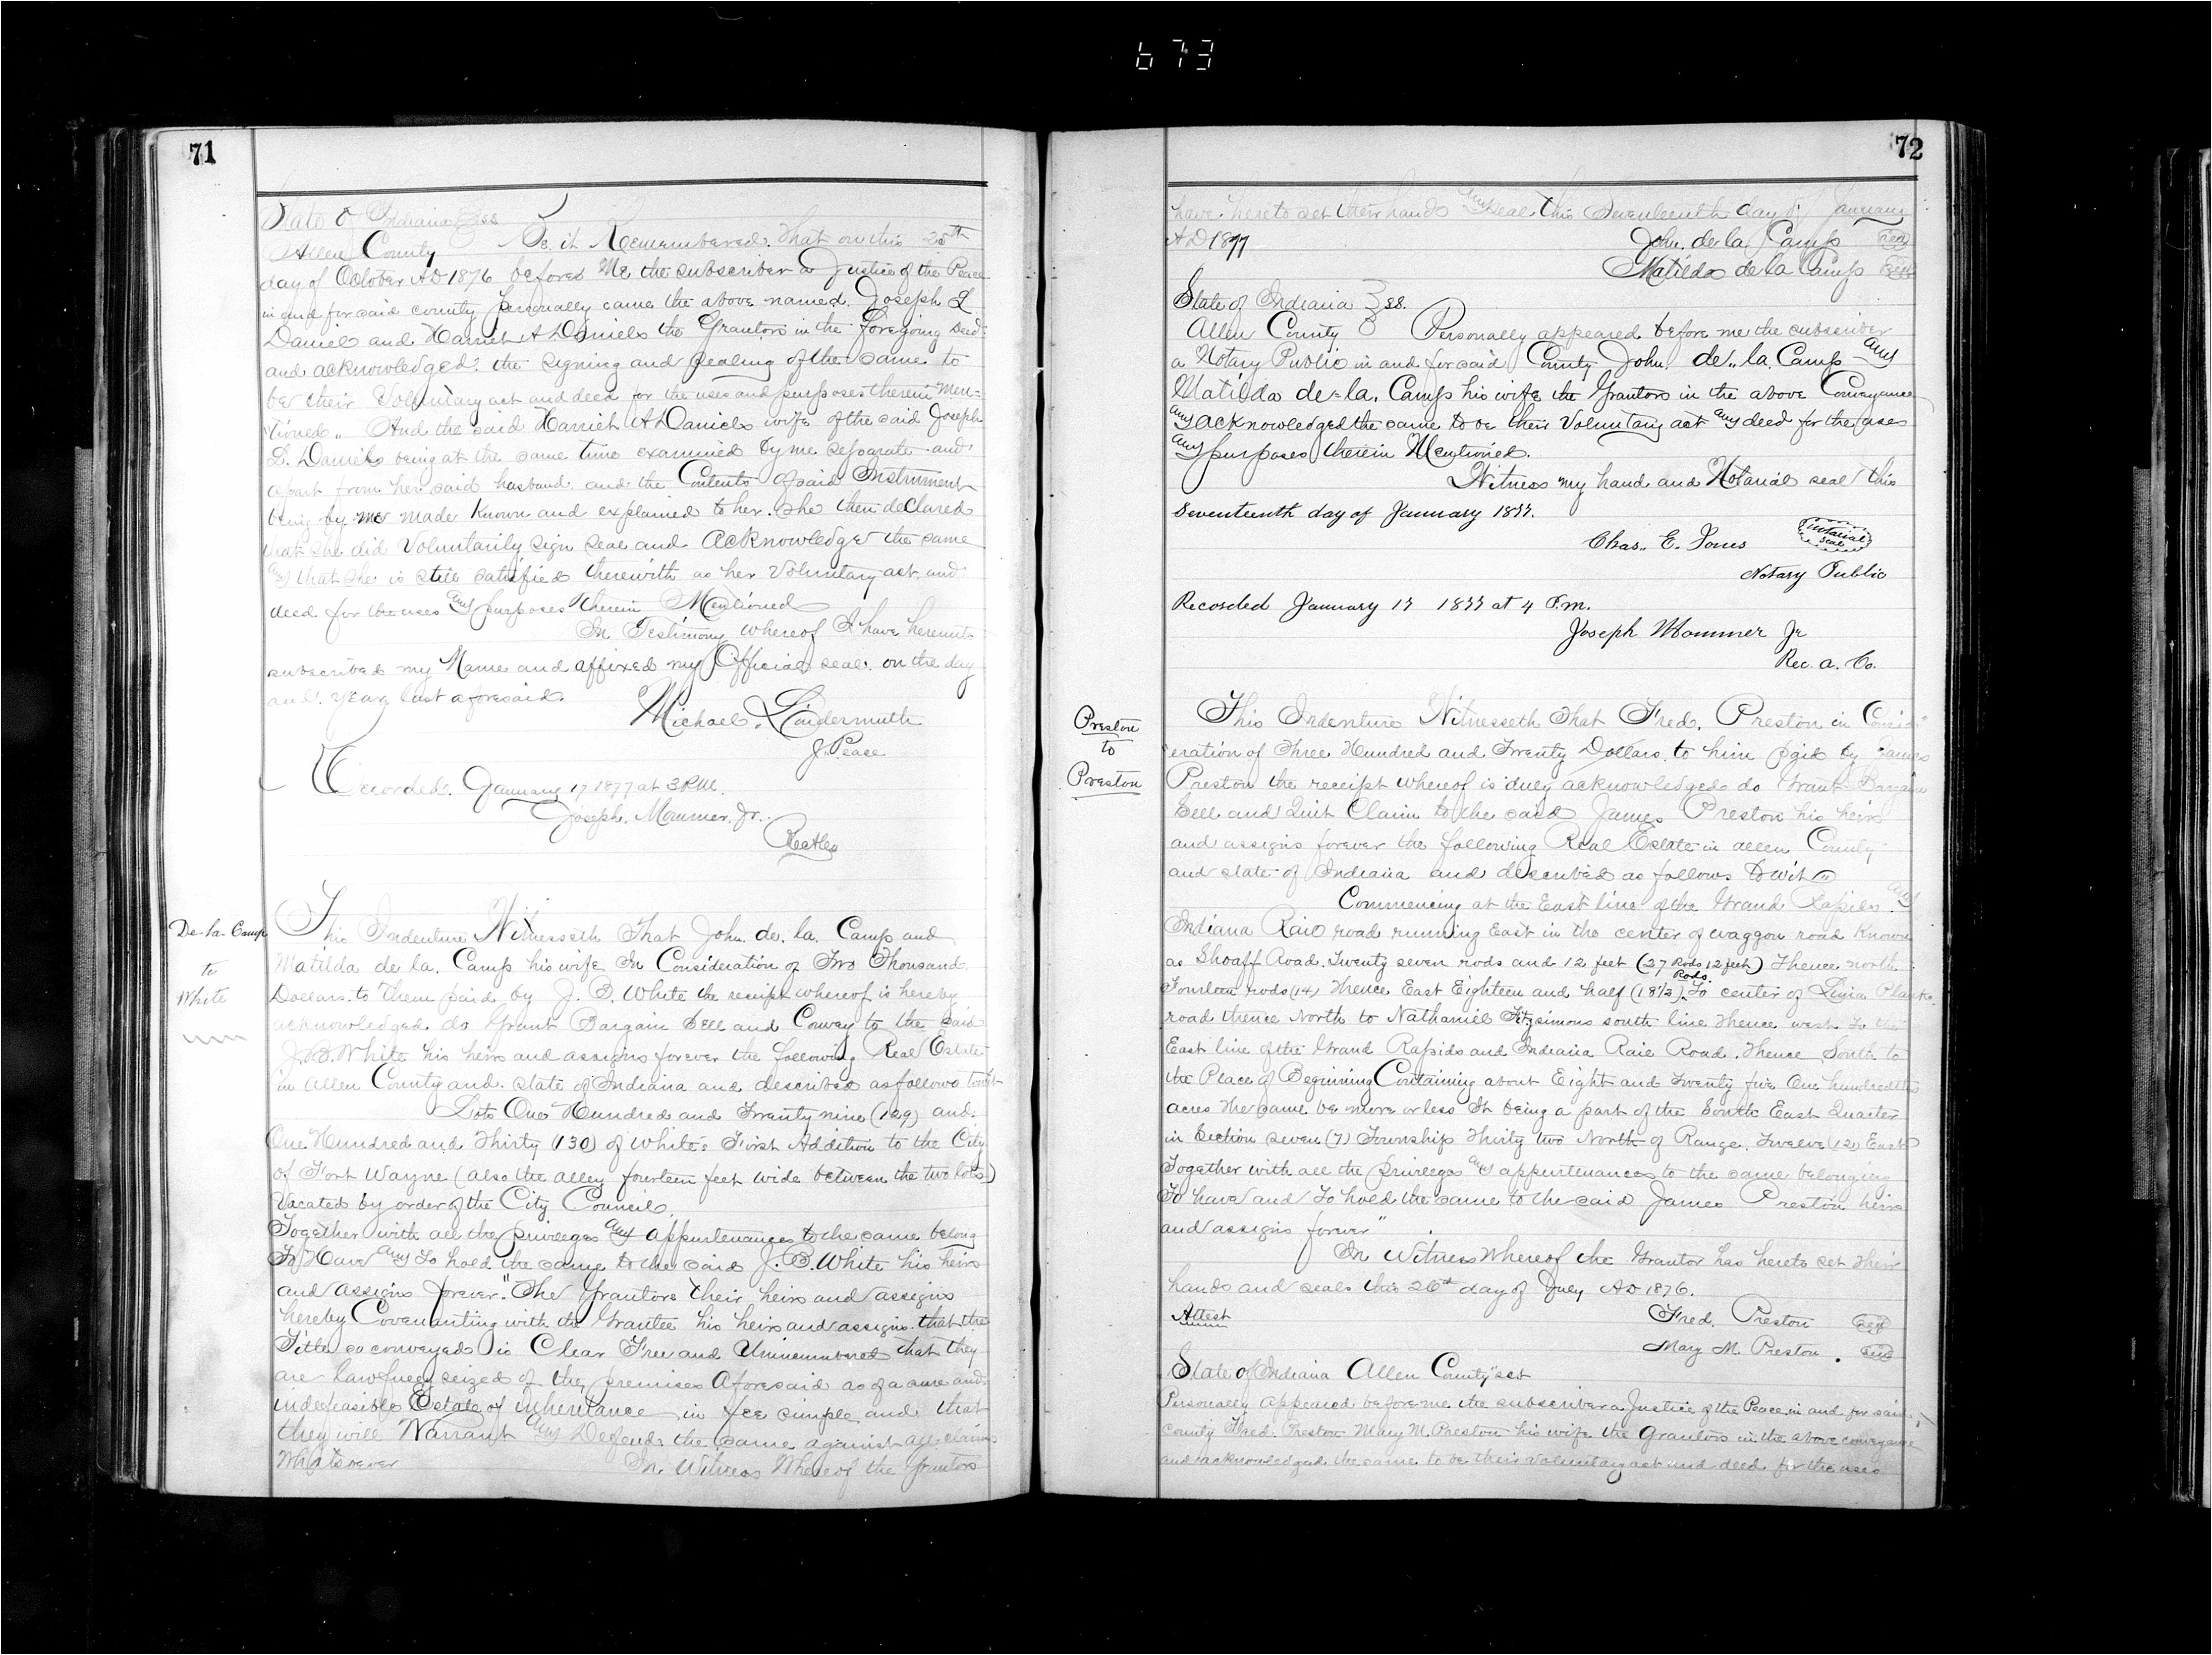 673
71
State of Indiana } ss
Allen County Be it Remembered. That on this 25th
day of October AD 1876 before Me the subscriber a Justice of the Peace
in and for said county personally came the above named. Joseph L
Daniel and Harriet A Daniels the Grantors in the foregoing Deed
and acknowledged. the signing and sealing of the same to
be their Voluntary act and deed for the uses and purposes therein men=
tioned,, And the said Harriet A Daniels wife of the said Joseph
L. Daniels being at the same time examined by me separate and
apart from her said husband and the Contents of said Instrument
being by me made Known and explained to her. She then declared
that she did Voluntarily sign seal and Acknowledge the same
and that she is still satisfied therewith as her Voluntary act. and
deed for the uses and purposes therein Mentioned
In Testimony whereof I have hereunto
subscribed my Name and affixed my Official seal. on the day
and. year last aforesaid.
Michael. Lindermuth
J. Peace
Recorded. January 17 1877 at 3 P.M.
Joseph. Mommer. Jr.
De-la-Camp
to
White
This Indenture Witnesseth That John. de. la. Camp and
Matilda de la. Camp his wife In Consideration of Two Thousand
Dollars. to them paid by J. B. White the receipt whereof is hereby
acknowledged do Grant Bargain Sell and Convey to the said
J. B. White his heirs and assigns forever the following Real Estate
in Allen County and. state of Indiana and described as follows towit
Lots One Hundred and Twenty nine (129) and.
One Hundred and Thirty (130) of White's First Addition to the City
of Fort Wayne (also the alley fourteen feet wide between the two lots)
Vacated by order of the City Council.
Together with all the privileges and appurtenances to the same belong
To Have and To hold the same to the said J. B. White his heirs
and assigns forever." The Grantors their heirs and assigns
hereby Covenanting with the Grantee his heirs and assigns. that the
Title so conveyed is Clear Free and Unincumbered that they
are lawfully seized of the premises Aforesaid as of a sure and
indefeasible Estate of inheritance in fee simple and that
they will Warrant and Defend the same against all claims
Whatsoever In Witness Whereof the Grantors
72
have hereto set their hands and seal this Seventeenth day of January
AD 1877 John. de la Camp Seal
Matilda de la Camp Seal
State of Indiana } ss.
Allen County Personally appeared before me the subscriber
a Notary Public in and for said County John. de.. la. Camp and
Matilda de=la. Camp his wife the Grantors in the above Conveyance
and acknowledged the same to be their Voluntary act and deed for the uses
and purposes therein Mentioned.
Witness my hand and Notarial seal this
Seventeenth day of January 1877.
Chas.. E. Jones Notarial seal
Notary Public
Recorded January 17 1877 at 4 P.m.
Joseph Mommer Jr
Rec. a. Co.
Preston
to
Preston
This Indenture Witnesseth That Fred. Preston in Consid
eration of Three Hundred and Twenty Dollars. to him paid by James
Preston the receipt whereof is duly acknowledged do Grant Bargain
Sell and Quit Claim to the said James Preston his heirs
and assigns forever the following Real Estate in allen County
and state of Indiana and described as follows to wit
Commencing at the East line of the Grand Rapids and
Indiana Rail road running East in the center of waggon road Known
as Shoaff Road. Twenty seven rods and 12 feet (27 Rods 12 feet) Thence north
Fourteen rods (14) Thence East Eighteen and half (18 1/2) Rods To center of Lima Plank
road thence North to Nathaniel Fitzsimons south line Thence west To the
East line of the Grand Rapids and Indiana Rail Road. Thence South to
the Place of Beginning Containing about Eight and Twenty five One hundredth
acres the same be more or less It being a part of the South East Quarter
in Section seven (7) Township Thirty two North of Range. Twelve (12) East
Together with all the Privileges and appurtenances to the same belonging
To have and To hold the same to the said James Preston heirs
and assigns forever"
In Witness Whereof the Grantor has hereto set their
hands and seals this 26th day of July AD 1876.
Attest Fred. Preston Seal
Mary M. Preston. Seal
State of Indiana Allen County" sct
Personally appeared before me the subscriber a Justice of the Peace in and for said
county Fred. Preston Mary M. Preston his wife the Grantors in the above conveyance
and acknowledged the same to be their voluntary act and deed for the uses